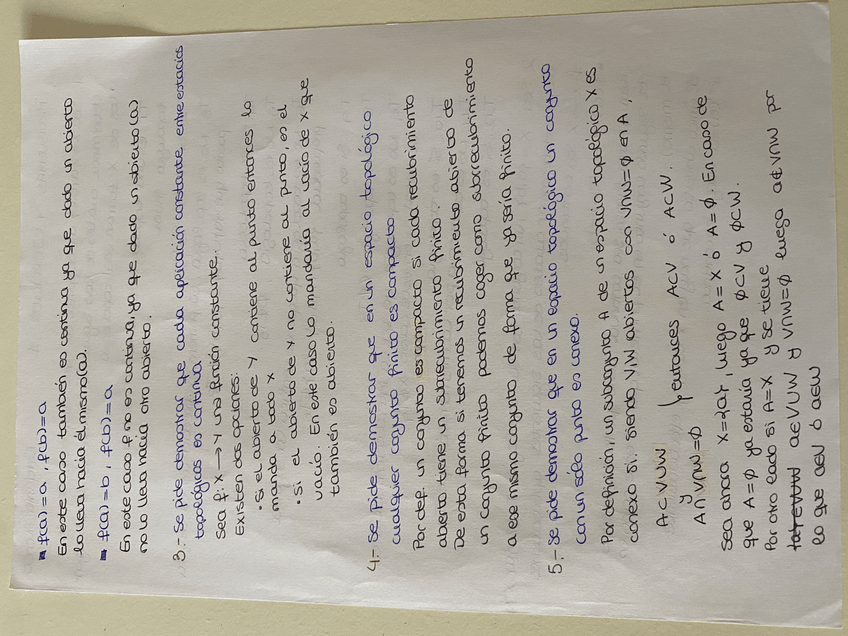 ▪ f(a)=a, f(b)=a
En este caso también es continua ya que dado un abierto
lo lleva hacia él mismo (a).
▪ f(a)=b, f(b)=a
En este caso f no es continua, ya que dado un abierto (a)
no lo lleva hacia otro abierto.
3.- Se pide demostrar que cada aplicación constante entre espacios
topológicos es continua
Sea f: X → Y una función constante.
Existen dos opciones:
• Si el abierto de Y contiene al punto entonces lo
manda a todo X
• Si el abierto de Y no contiene al punto, es el
vacío. En este caso lo mandaría al vacío de X que
también es abierto.
4.- Se pide demostrar que en un espacio topológico
cualquier conjunto finito es compacto
Por def. un conjunto es compacto si cada recubrimiento
abierto tiene un subrecubrimiento finito.
De esta forma si tenemos un recubrimiento abierto de
un conjunto finito podemos coger como subrecubrimiento
a ese mismo conjunto de forma que ya sería finito.
5.- Se pide demostrar que en un espacio topológico un conjunto
con un sólo punto es conexo.
Por definición, un subconjunto A de un espacio topológico X es
conexo si, siendo V,W abiertos con V∩W=∅ en A,
A⊂V∪W
y } entonces A⊂V ó A⊂W.
A∩V∩W=∅
Sea ahora X={a}, luego A=X ó A=∅. En caso de
que A=∅ ya estaría ya que ∅⊂V y ∅⊂W.
Por otro lado si A=X y se tiene
a∈V∪W y V∩W=∅ luego a∉V∩W por
lo que a∈V ó a∈W